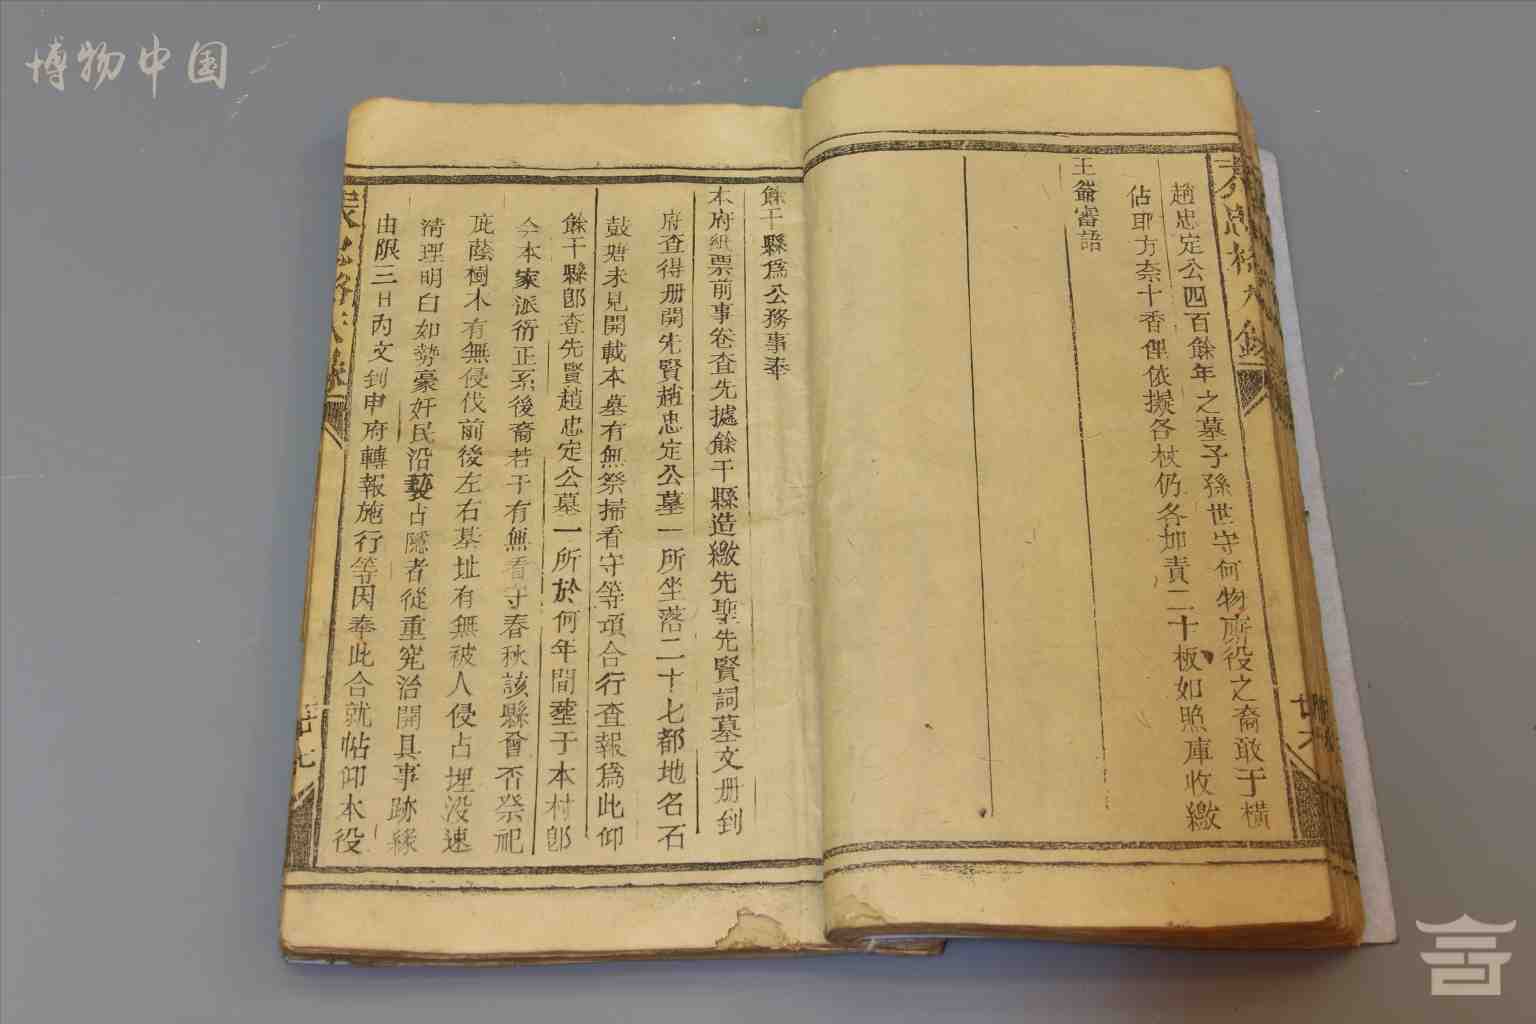 博物中国
趙忠定公四百餘年之墓子孫世守何物府役之裔敢于橫
佔耶方奈十香俚依擬各杖仍各加責二十板如照庫收繳
王爺審語
廿六
餘干縣爲公務事奉
本府紙票前事卷查先據餘干縣造繳先聖先賢詞墓文册到
府查得册開先賢趙忠定公墓一所坐落二十七都地名石
鼓塘未見開載本墓有無祭掃看守等項合行查報爲此仰
餘干縣卽查先賢趙忠定公墓一所於何年間塟于本村卽
今本家派衍正系後裔若干有無看守春秋該縣曾否祭祀
庇蔭樹木有無侵伐前後左右基址有無被人侵占埋没速
清理明白如勢豪奸民沿襲占隱者從重究治開具事跡緣
由限三日内文到申府轉報施行等因奉此合就帖仰本役
廿七